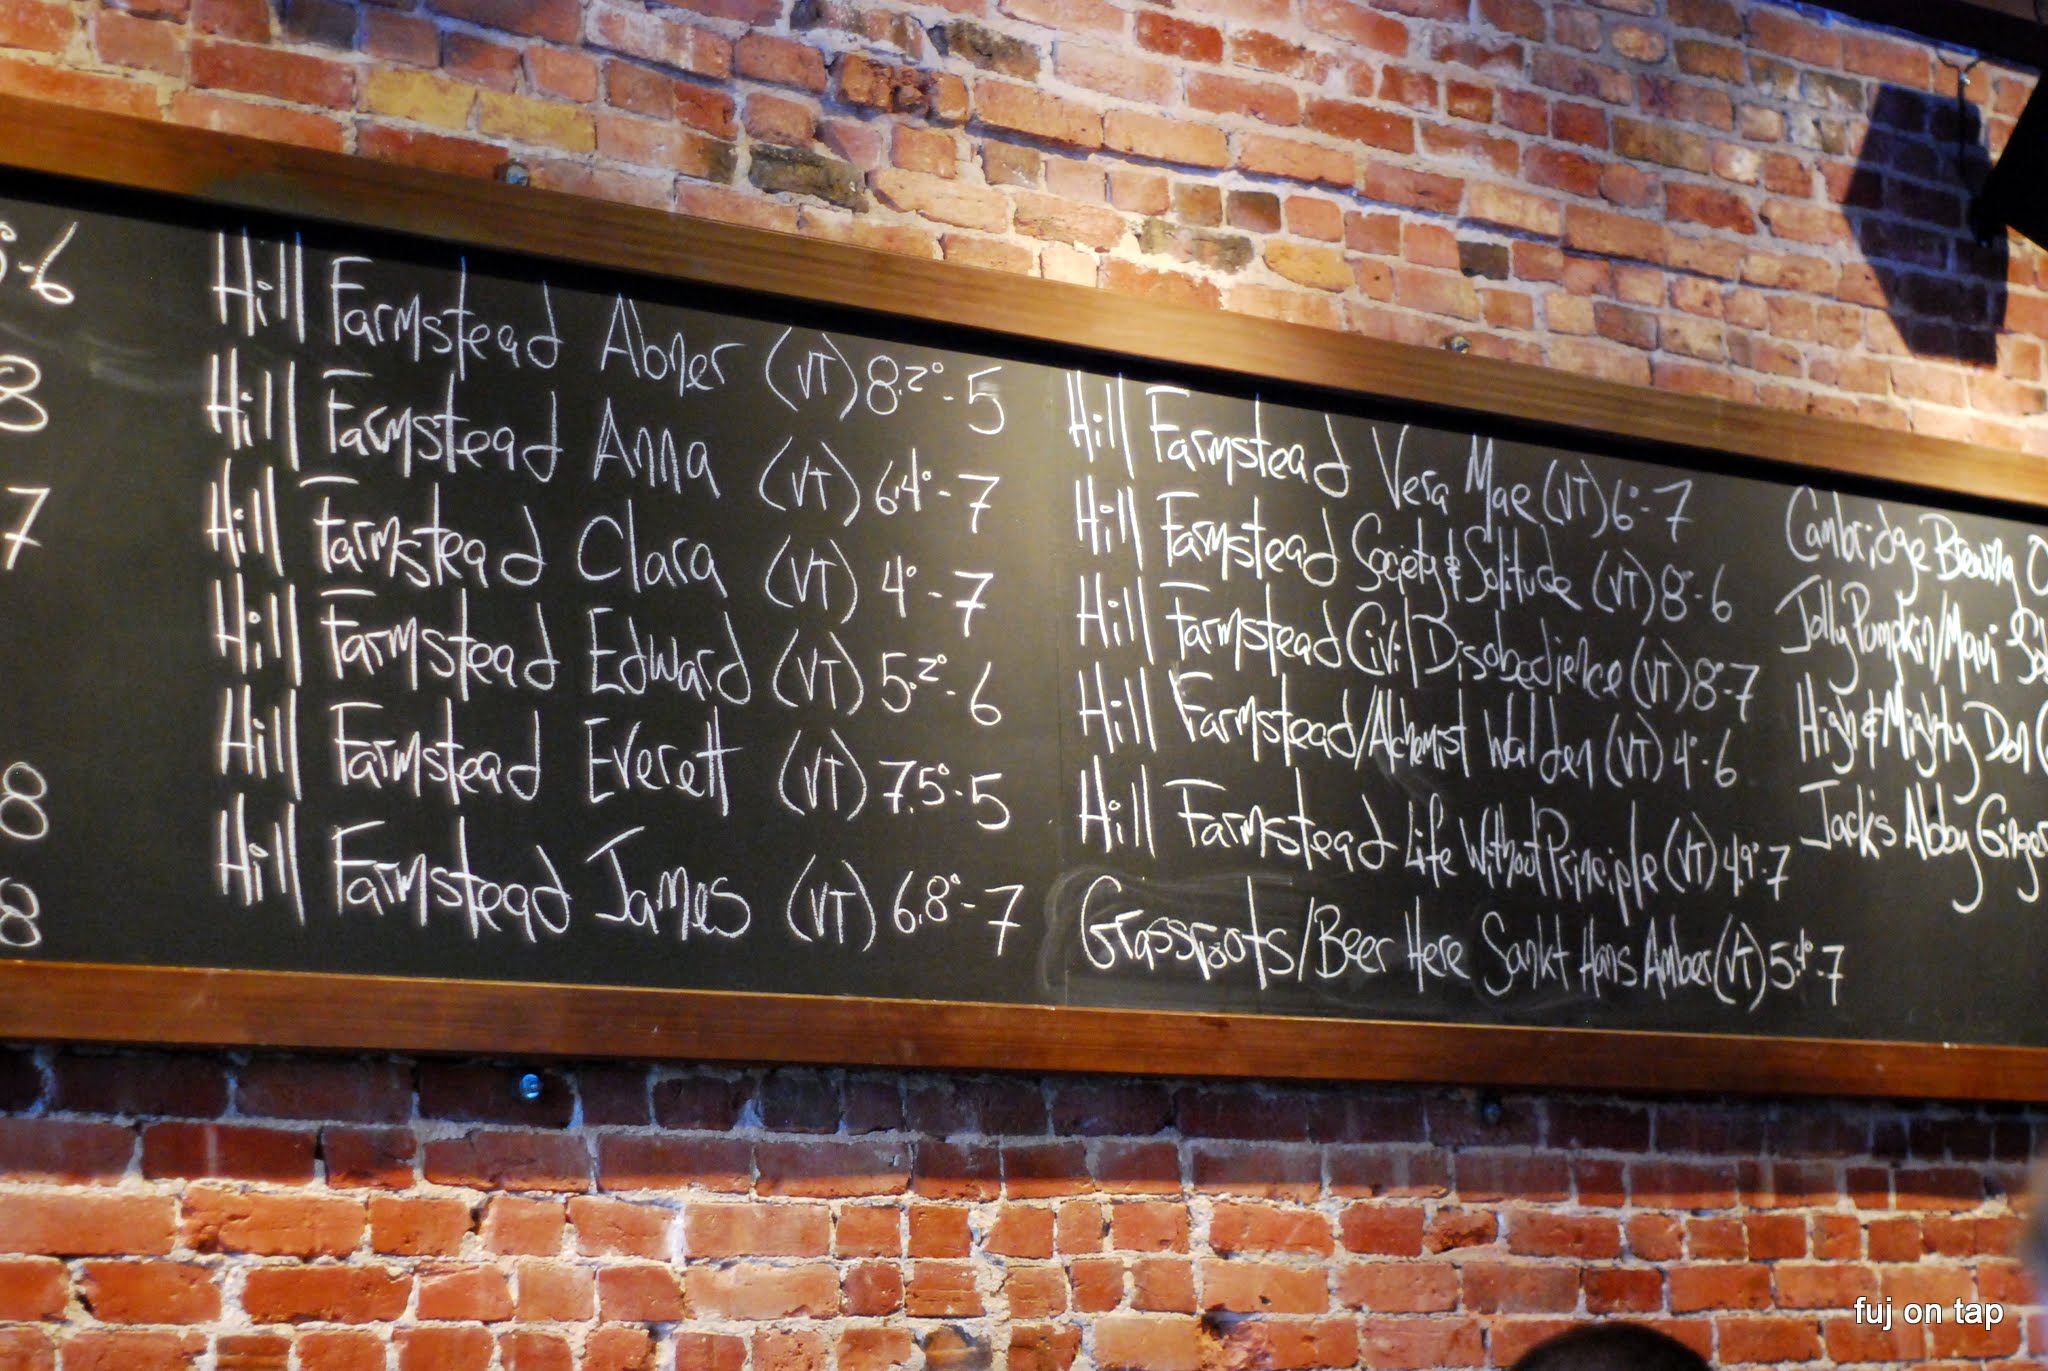 5-6
8
7
8
8
Hill Farmstead Abner (VT) 8.2° - 5
Hill Farmstead Anna (VT) 6.4° - 7
Hill Farmstead Clara (VT) 4° - 7
Hill Farmstead Edward (VT) 5.2° - 6
Hill Farmstead Everett (VT) 7.5° - 5
Hill Farmstead James (VT) 6.8° - 7
Hill Farmstead Vera Mae (VT) 6° - 7
Hill Farmstead Society & Solitude (VT) 8° - 6
Hill Farmstead Civil Disobedience (VT) 8° - 7
Hill Farmstead/Alchemist Walden (VT) 4° - 6
Hill Farmstead Life Without Principle (VT) 4.9° - 7
Grassroots/Beer Here Sankt Hans Amber (VT) 5.4° - 7
Cambridge Brewing
Jolly Pumpkin/Maui
High & Mighty Don
Jacks Abby Ginger
fuj on tap